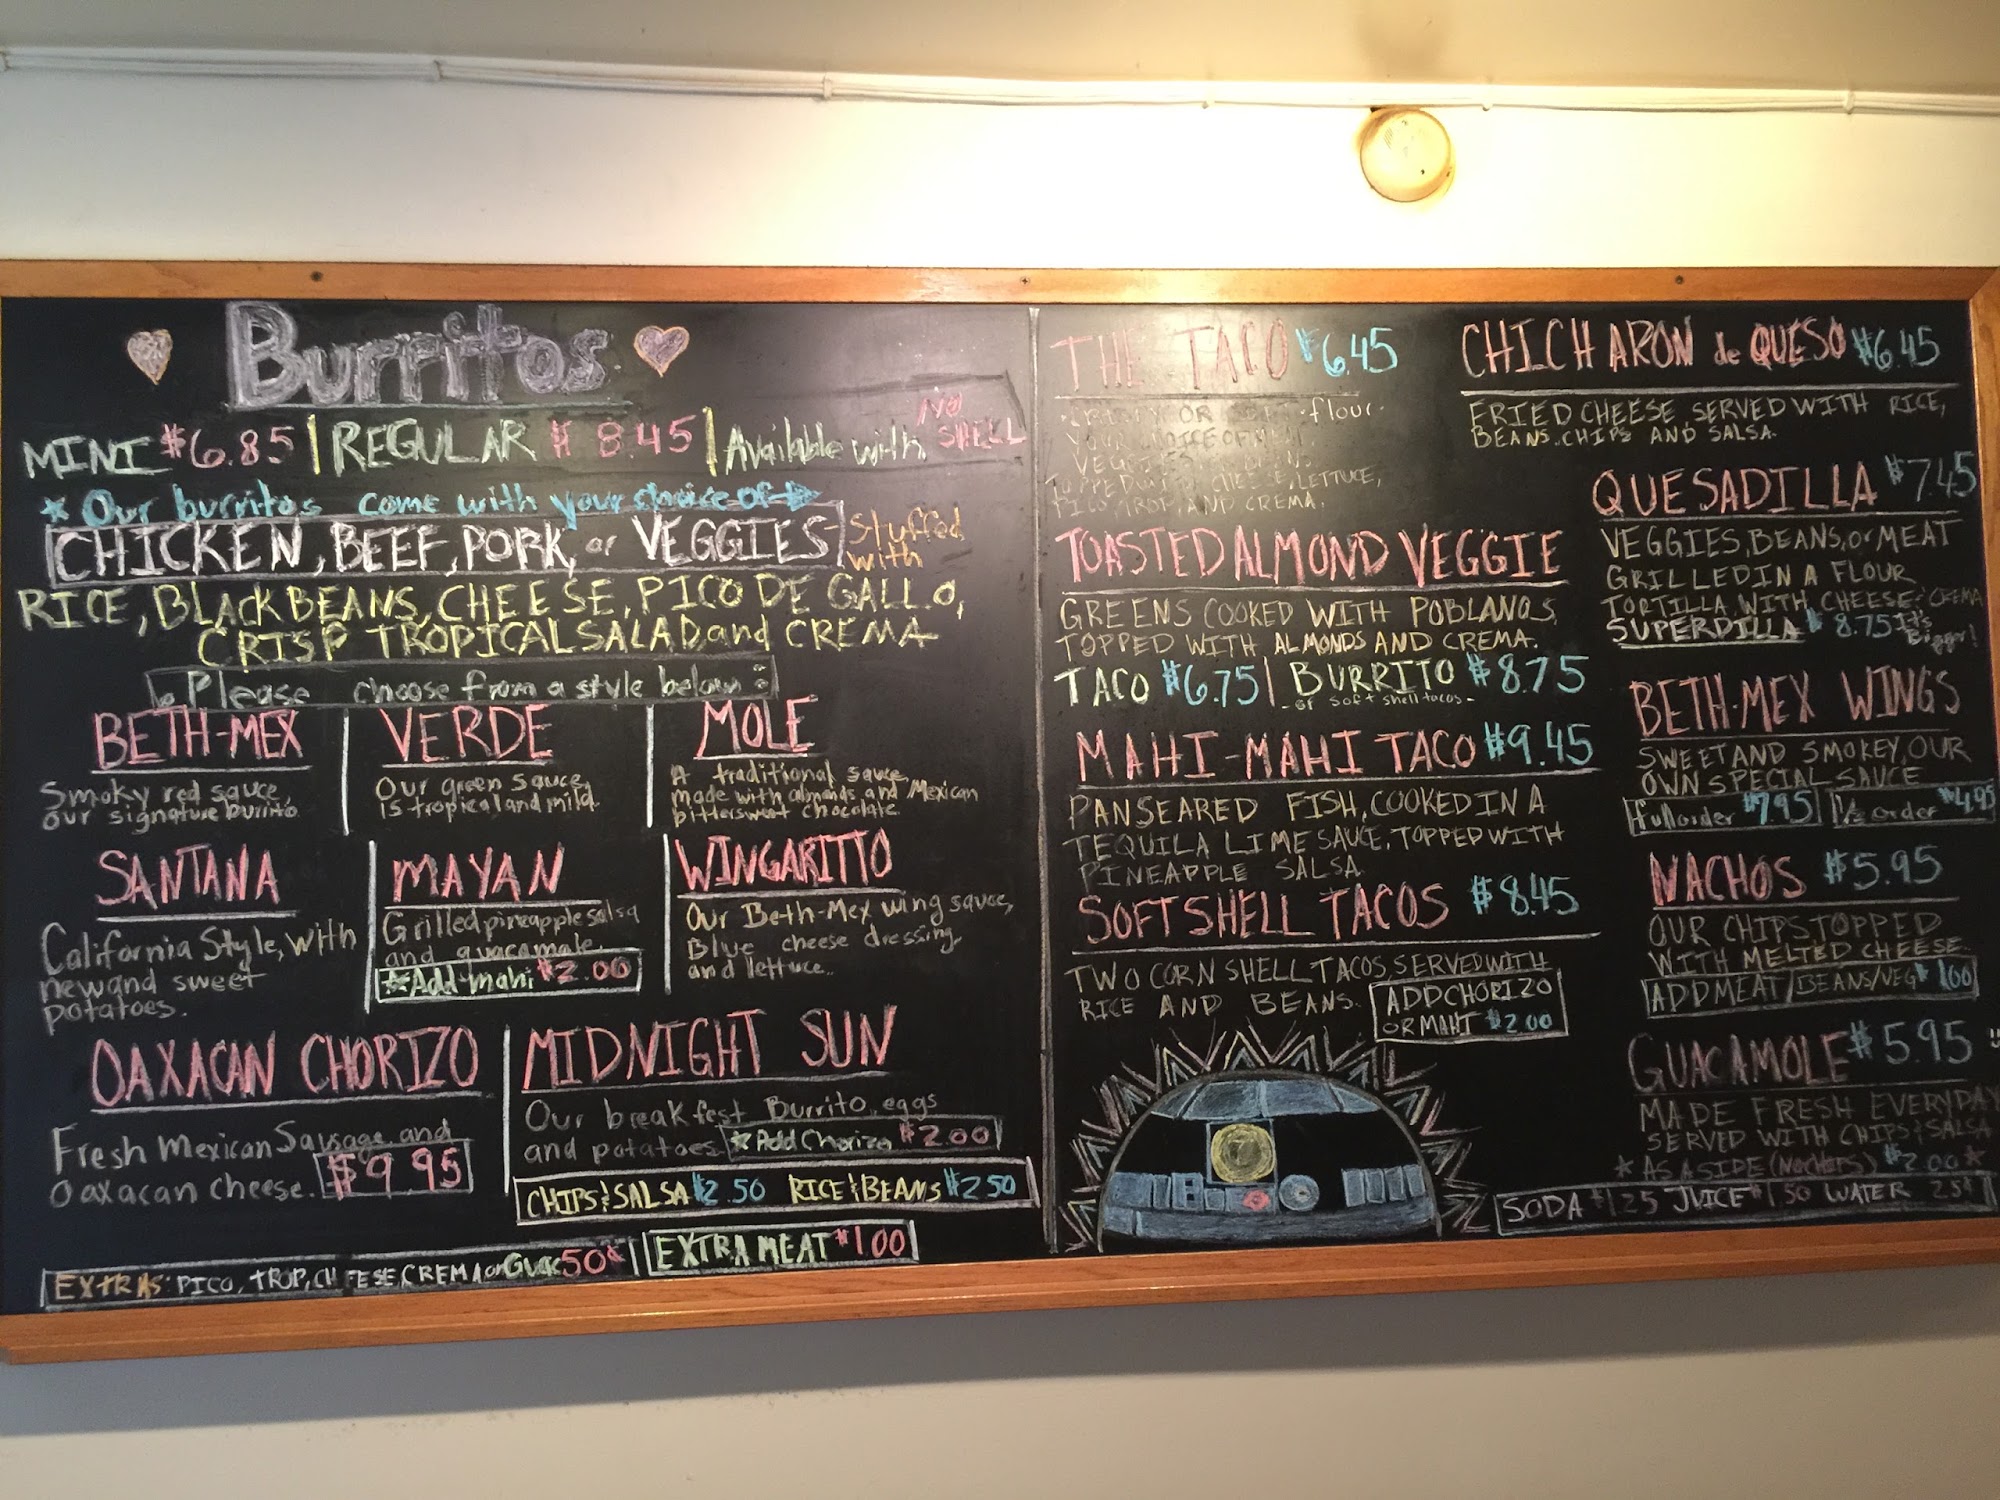 Burritos
MINI $6.85 | REGULAR $8.45 | Available with NO SHELL
* Our burritos come with your choice of
CHICKEN, BEEF, PORK, or VEGGIES - Stuffed with
RICE, BLACK BEANS, CHEESE, PICO DE GALLO,
CRISP TROPICAL SALAD, and CREMA
Please choose from a style below:
BETH-MEX
Smoky red sauce,
our signature burrito
VERDE
Our green sauce,
is tropical and mild.
MOLE
A traditional sauce,
made with almonds and Mexican
bittersweet chocolate.
SANTANA
California Style, with
new and sweet
potatoes.
MAYAN
Grilled pineapple salsa
and guacamole.
*Add mahi $2.00
WINGARITTO
Our Beth-Mex wing sauce,
Blue cheese dressing,
and lettuce..
OAXACAN CHORIZO
Fresh Mexican Sausage and
Oaxacan cheese. $9.95
MIDNIGHT SUN
Our breakfest Burrito, eggs
and potatoes. *Add Chorizo $2.00
CHIPS & SALSA $2.50 RICE & BEANS $2.50
EXTRAS: PICO, TROP, CHEESE, CREMA or Guac 50¢
EXTRA MEAT $1.00
THE TACO $6.45
OR flour.
CHEESE, LETTUCE,
PICO, TROP, AND CREMA.
TOASTED ALMOND VEGGIE
GREENS COOKED WITH POBLANOS,
TOPPED WITH ALMONDS AND CREMA.
TACO $6.75 | BURRITO $8.75
- or soft shell tacos -
MAHI-MAHI TACO $9.45
PAN SEARED FISH, COOKED IN A
TEQUILA LIME SAUCE, TOPPED WITH
PINEAPPLE SALSA.
SOFT SHELL TACOS $8.45
TWO CORN SHELL TACOS, SERVED WITH
RICE AND BEANS.
ADD CHORIZO
OR MAHI $2.00
CHICHARON de QUESO $6.45
FRIED CHEESE, SERVED WITH RICE,
BEANS, CHIPS AND SALSA.
QUESADILLA $7.45
VEGGIES, BEANS, or MEAT
GRILLED IN A FLOUR
TORTILLA, WITH CHEESE & CREMA
SUPERDILLA $8.75 It's Bigger!
BETH-MEX WINGS
SWEET AND SMOKEY, OUR
OWN SPECIAL SAUCE
full order $7.95 ½ order $4.95
NACHOS $5.95
OUR CHIPS TOPPED
WITH MELTED CHEESE.
ADD MEAT/BEANS/VEG $1.00
GUACAMOLE $5.95
MADE FRESH EVERYDAY
SERVED WITH CHIPS & SALSA
* AS A SIDE (NO CHIPS) $2.00 *
SODA $1.25 JUICE $1.50 WATER 25¢